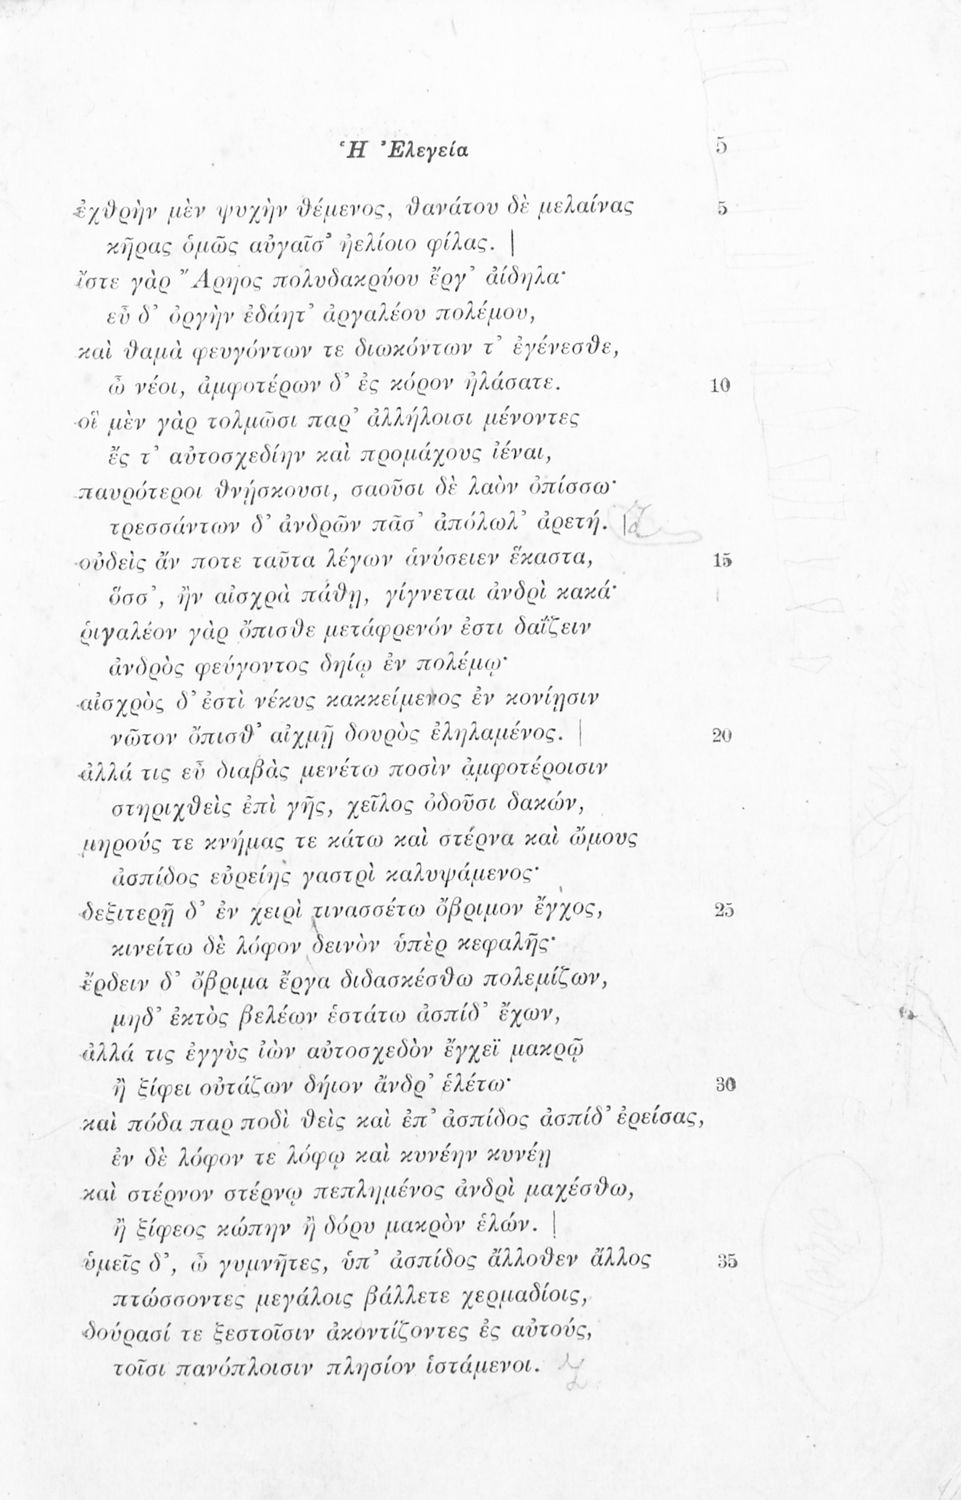 Ἡ Ἐλεγεία 5
ἐχθρὴν μὲν ψυχὴν θέμενος, θανάτου δὲ μελαίνας 5
κῆρας ὁμῶς αὐγαῖσ’ ἠελίοιο φίλας. |
ἴστε γὰρ Ἄρηος πολυδακρύου ἔργ’ ἀίδηλα·
εὖ δ’ ὀργὴν ἐδάητ’ ἀργαλέου πολέμου,
καὶ θαμὰ φευγόντων τε διωκόντων τ’ ἐγένεσθε,
ὦ νέοι, ἀμφοτέρων δ’ ἐς κόρον ἠλάσατε. 10
οἳ μὲν γὰρ τολμῶσι παρ’ ἀλλήλοισι μένοντες
ἔς τ’ αὐτοσχεδίην καὶ προμάχους ἰέναι,
παυρότεροι θνήσκουσι, σαοῦσι δὲ λαὸν ὀπίσσω·
τρεσσάντων δ’ ἀνδρῶν πᾶσ’ ἀπόλωλ’ ἀρετή. |
οὐδεὶς ἄν ποτε ταῦτα λέγων ἀνύσειεν ἕκαστα, 15
ὅσσ’, ἢν αἰσχρὰ πάθῃ, γίγνεται ἀνδρὶ κακά·
ῥιγαλέον γὰρ ὄπισθε μετάφρενόν ἐστι δαΐζειν
ἀνδρὸς φεύγοντος δηίῳ ἐν πολέμῳ·
αἰσχρὸς δ’ ἐστὶ νέκυς κακκείμενος ἐν κονίῃσιν
νῶτον ὄπισθ’ αἰχμῇ δουρὸς ἐληλαμένος. | 20
ἀλλά τις εὖ διαβὰς μενέτω ποσὶν ἀμφοτέροισιν
στηριχθεὶς ἐπὶ γῆς, χεῖλος ὀδοῦσι δακών,
μηρούς τε κνήμας τε κάτω καὶ στέρνα καὶ ὤμους
ἀσπίδος εὐρείης γαστρὶ καλυψάμενος·
δεξιτερῇ δ’ ἐν χειρὶ τινασσέτω ὄβριμον ἔγχος, 25
κινείτω δὲ λόφον δεινὸν ὑπὲρ κεφαλῆς·
ἔρδειν δ’ ὄβριμα ἔργα διδασκέσθω πολεμίζων,
μηδ’ ἐκτὸς βελέων ἑστάτω ἀσπίδ’ ἔχων,
ἀλλά τις ἐγγὺς ἰὼν αὐτοσχεδὸν ἔγχεϊ μακρῷ
ἢ ξίφει οὐτάζων δήιον ἄνδρ’ ἑλέτω· 30
καὶ πόδα παρ ποδὶ θεὶς καὶ ἐπ’ ἀσπίδος ἀσπίδ’ ἐρείσας,
ἐν δὲ λόφον τε λόφῳ καὶ κυνέην κυνέῃ
καὶ στέρνον στέρνῳ πεπλημένος ἀνδρὶ μαχέσθω,
ἢ ξίφεος κώπην ἢ δόρυ μακρὸν ἑλών. |
ὑμεῖς δ’, ὦ γυμνῆτες, ὑπ’ ἀσπίδος ἄλλοθεν ἄλλος 35
πτώσσοντες μεγάλοις βάλλετε χερμαδίοις,
δούρασί τε ξεστοῖσιν ἀκοντίζοντες ἐς αὐτούς,
τοῖσι πανόπλοισιν πλησίον ἱστάμενοι.